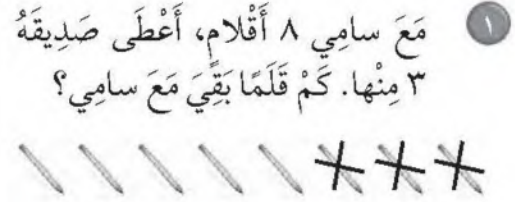 ١
مَعَ سامِي ٨ أَقْلامٍ، أَعْطَى صَدِيقَهُ
٣ مِنْها. كَمْ قَلَمًا بَقِيَ مَعَ سامِي؟